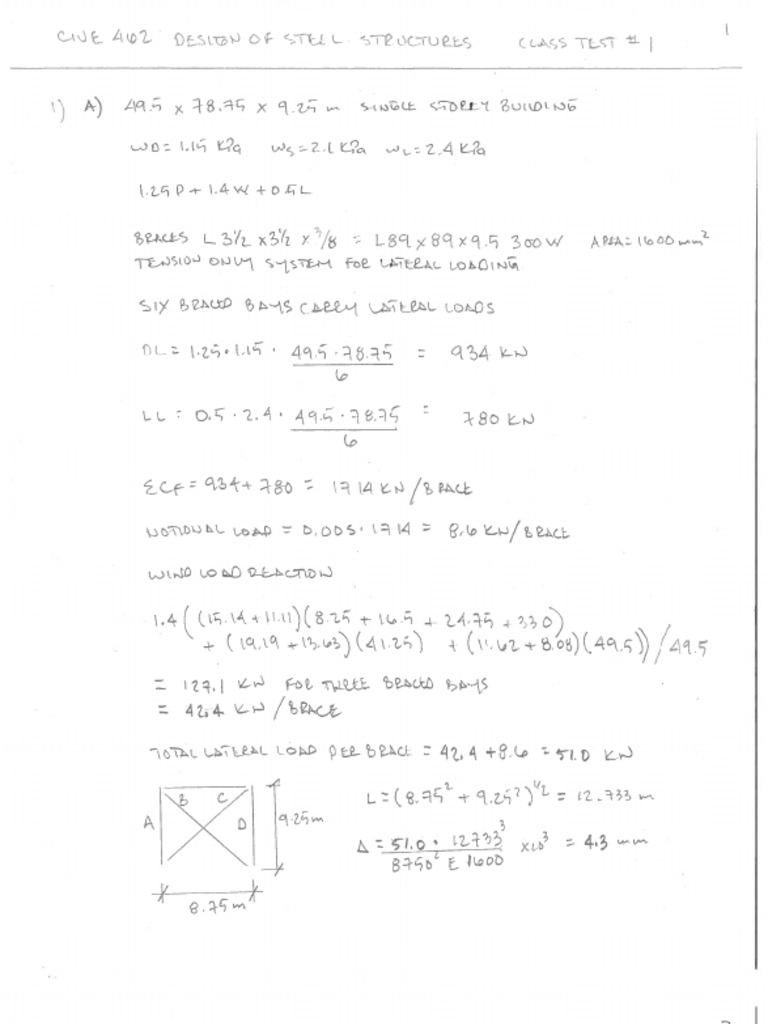 1
CIVE 462 DESIGN OF STEEL STRUCTURES CLASS TEST # 1
1) A) 49.5 x 78.75 x 9.25 m SINGLE STOREY BUILDING
WD = 1.15 KPa WS = 2.1 KPa WL = 2.4 KPa
1.25D + 1.4W + 0.5L
BRACES L 3½ x 3½ x 3/8 = L89 x 89 x 9.5 300W AREA = 1600 mm²
TENSION ONLY SYSTEM FOR LATERAL LOADING
SIX BRACED BAYS CARRY LATERAL LOADS
DL = 1.25 · 1.15 · 49.5 · 78.75 / 6 = 934 KN
LL = 0.5 · 2.4 · 49.5 · 78.75 / 6 = 780 KN
ΣCF = 934 + 780 = 1714 KN / BRACE
NOTIONAL LOAD = 0.005 · 1714 = 8.6 KN / BRACE
WIND LOAD REACTION
1.4 ( (15.14 + 11.11)(8.25 + 16.5 + 24.75 + 330)
+ (19.19 + 13.63)(41.25) + (11.62 + 8.08)(49.5)) / 49.5
= 127.1 KN FOR THREE BRACED BAYS
= 42.4 KN / BRACE
TOTAL LATERAL LOAD PER BRACE = 42.4 + 8.6 = 51.0 KN
A B C D 9.25m
8.75m
L = (8.75² + 9.25²)^1/2 = 12.733 m
Δ = 51.0 · 12733³ / 8750² E 1600 x10³ = 4.3 mm